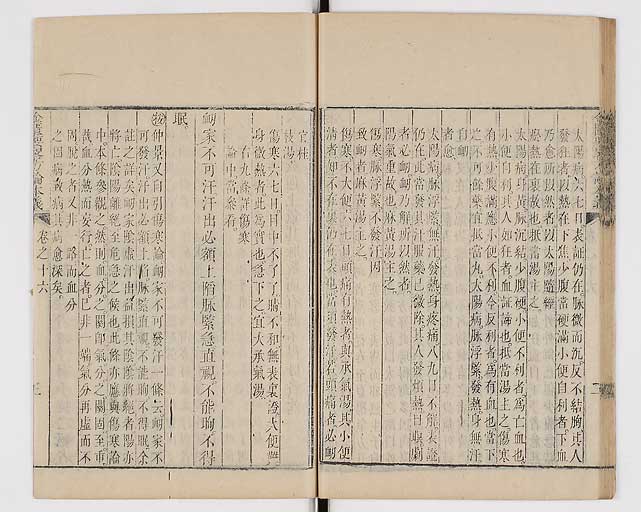 太陽病六七日表証仍在脉微而沉反不結胸其人
發狂者以熱在下焦少腹當硬滿小便自利者下血
乃愈所以然者以太陽隨經
瘀熱在裏故也抵當湯主之
太陽病身黃脉沉結少腹硬小便不利者爲亡血也
小便自利其人如狂者血証諦也抵當湯主之傷寒
有熱少腹滿應小便不利今反利者爲有血也當下
之不可餘藥宜抵當丸太陽病脉浮緊發熱身無汗
自衄
者愈
太陽病脉浮緊無汗發熱身疼痛八九日不解表證
仍在此當發其汗服藥已微除其人發煩熱目瞑劇
者必衄衄乃解所以然者
陽氣重故也麻黃湯主之
傷寒脉浮緊不發汗因
致衄者麻黃湯主之
傷寒不大便六七日頭痛有熱者與承氣湯其小便
清者知不在裏仍在表也當須發汗若頭痛者必衄
宜桂
枝湯
傷寒六七日目中不了了睛不和無表裏證大便難
身微熱者此爲實也急下之宜大承氣湯
右九條詳傷寒
論中當叅看
衄家不可汗汗出必額上陷脉緊急直視不能眴不得
眠
仲景又自引傷寒論衄家不可發汗一條云衄家不
可發汗汗出必額上陷脉緊急直視不能眴不得眠余
註之詳矣衄家陰虛汗出益損其陰陰將絶者陽亦
將亡陰陽離絶至危急之候也此條亦應與傷寒論
中本條參觀之然則血分之關卽氣分之關固至重
哉血分熱而妄行亡之者已非一端氣分再虛而不
固脫之者又非
之因病黃病其病
愈深矣
卷之十六